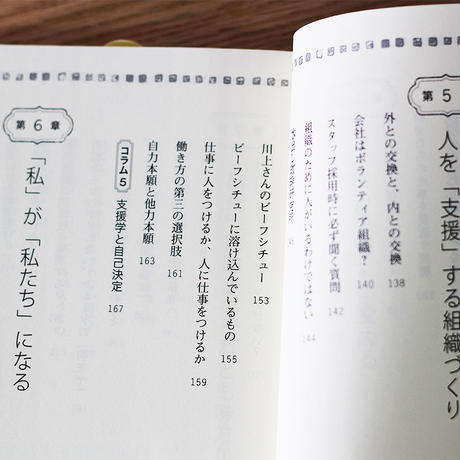 第5
人を「支援」する組織づくり
外との交換と、内との交換 138
会社はボランティア組織？ 140
スタッフ採用時に必ず聞く質問 142
組織のために人がいるわけではない 144
川上さんのビーフシチュー 153
ビーフシチューに溶け込んでいるもの 155
仕事に人をつけるか、人に仕事をつけるか 159
働き方の第三の選択肢 161
自力本願と他力本願 163
コラム5 支援学と自己決定 167
第6章
「私」が「私たち」になる